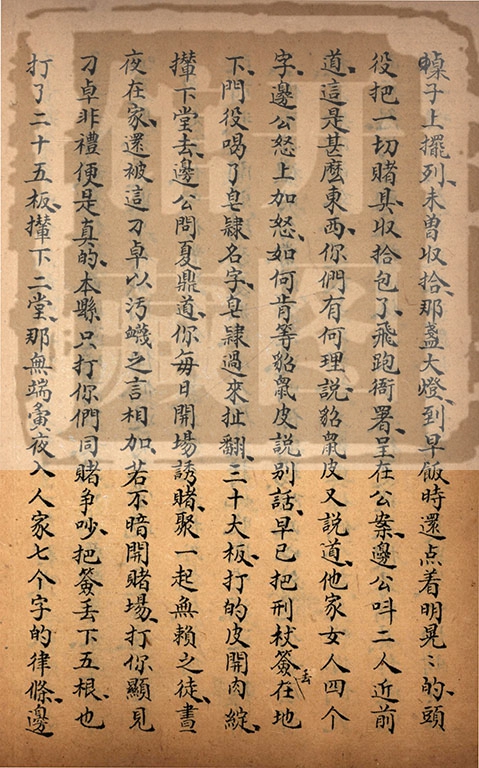 棹子上擺列未曽収拾那盞大燈到早飯時還点着明晃〻的頭
役把一切賭具収拾包了飛跑衙署呈在公案邊公呌二人近前
道這是甚麽東西你們有何理說貂鼠皮又說道他家女人四个
字邊公怒上加怒如何肯等貂鼠皮說别話早已把刑杖簽丢在地
下門役喝了皂隸名字皂隸過來扯翻三十大板打的皮開肉綻
攆下堂去邊公問夏鼎道你每日開場誘賭聚一起無賴之徒晝
夜在家還被這刁卓以汚衊之言相加若不暗開賭場打你顯見
刁卓非禮便是真的本縣只打你們同賭争吵把簽丢下五根也
打了二十五板攆下二堂那無端夤夜入人家七个字的律條邊